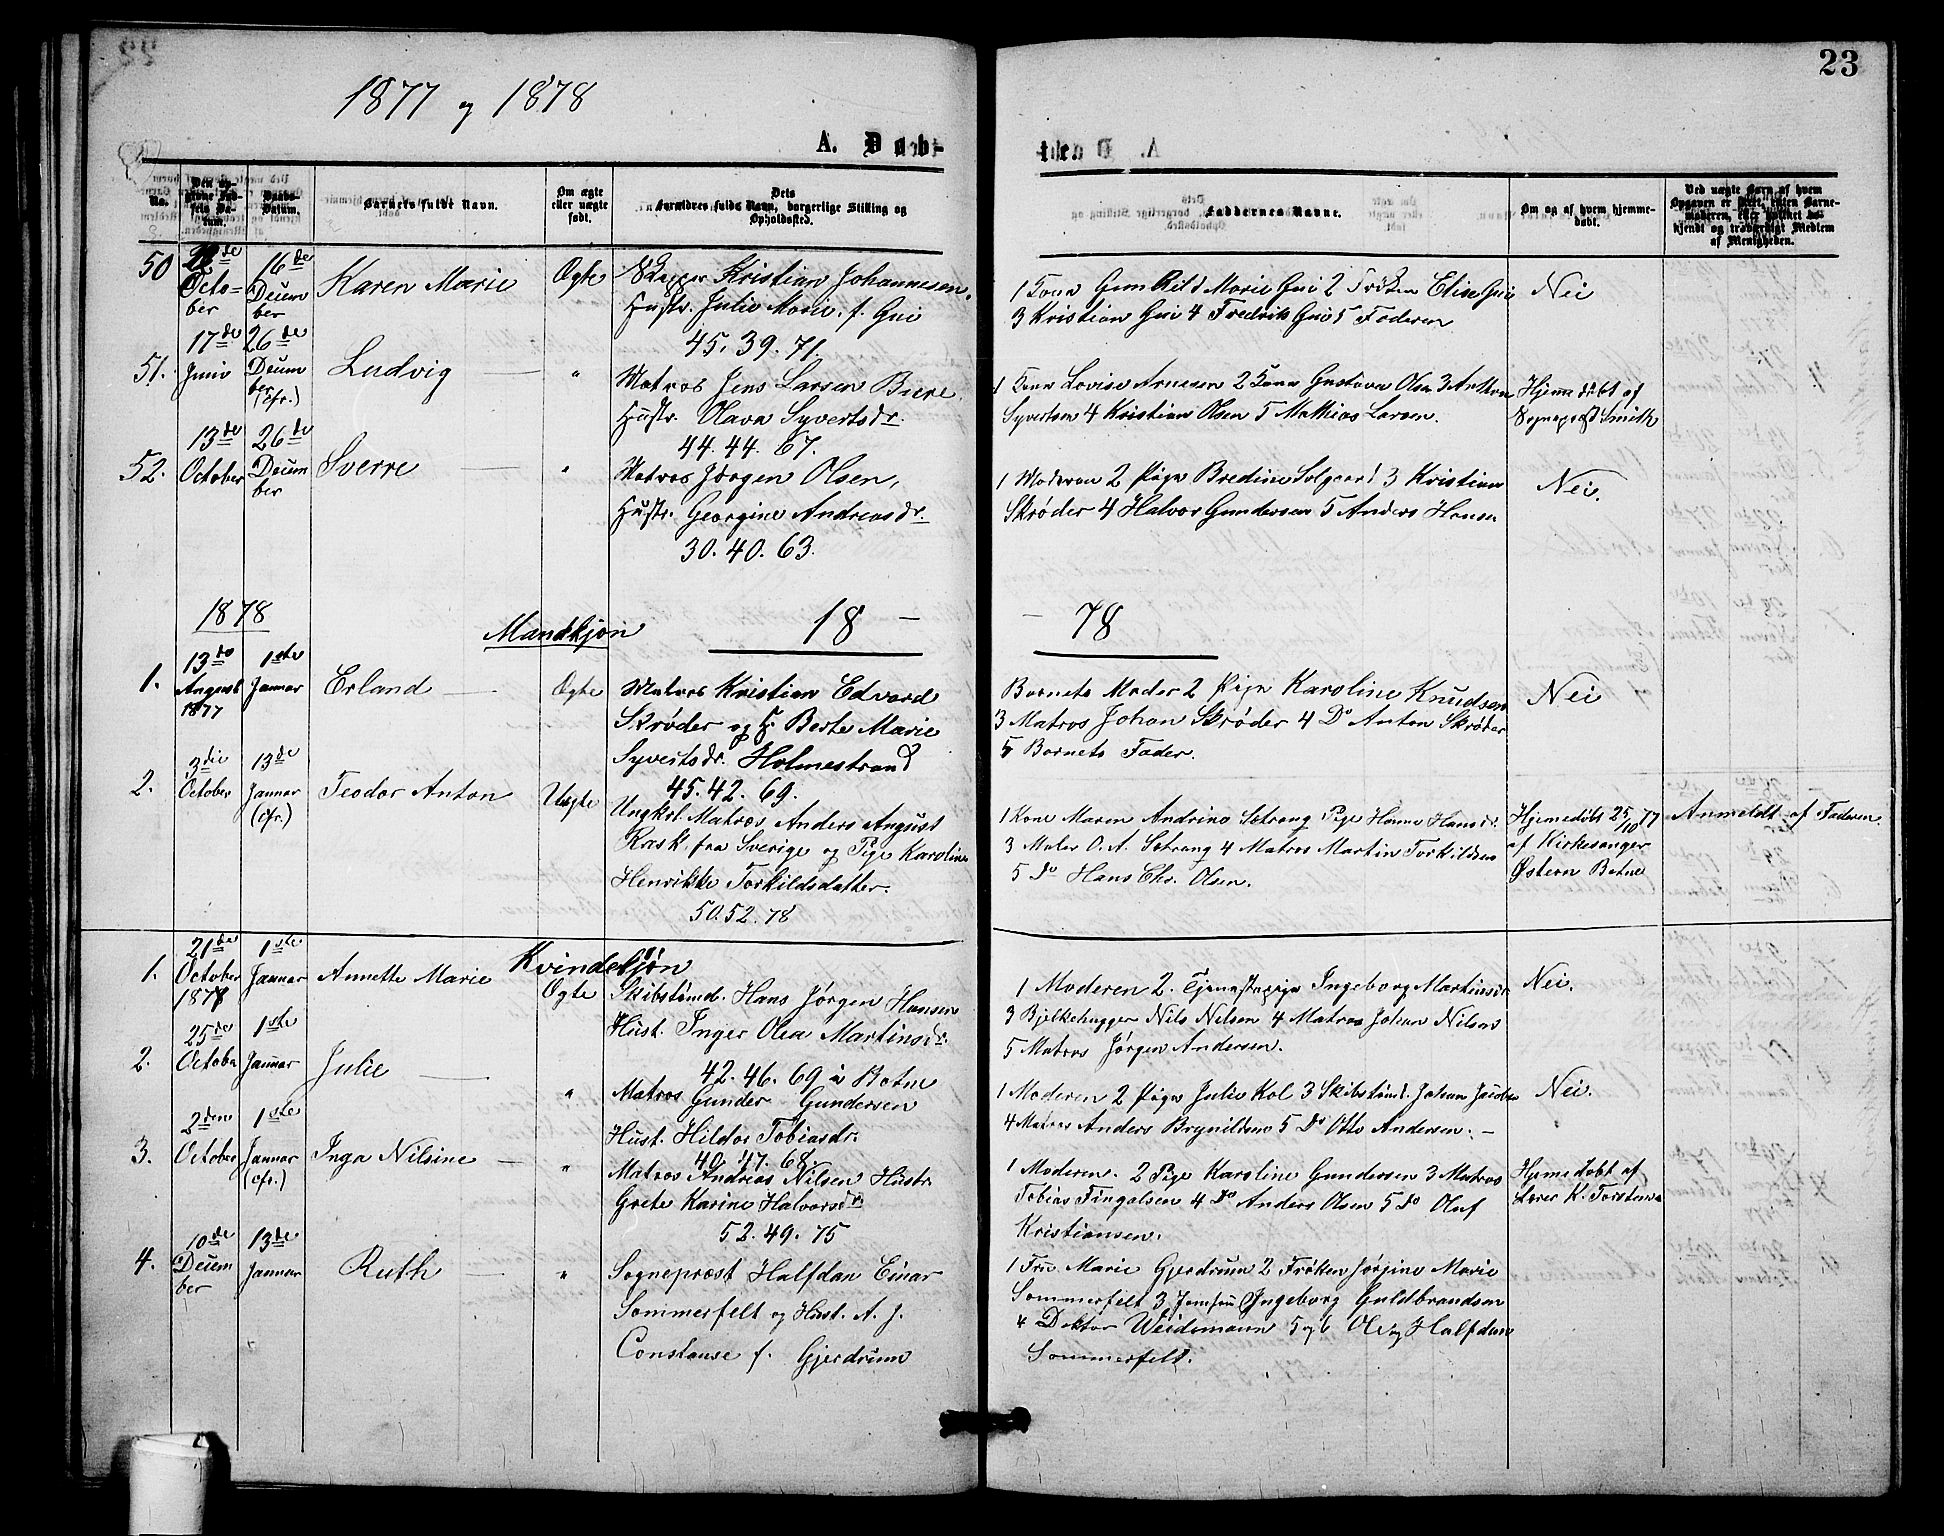 1877 og 1878
23
A. Døb-
te
No.
Den opgivne Fødsels Datum.
Daabs-Datum.
Barnets fulde Navn.
Om ægte eller uægte født.
Dets Forældres fulde Navn, borgerlige Stilling og Opholdssted.
Faddernes Navne.
Om og af hvem hjemmedøbt.
Ved uægte Barn af hvem Opgaven er skeet, enten Barnemoderen, eller hvilket bekjendt og troværdigt Medlem af Menigheden.
50 October 16de December Karen Marie Ægte Skipper Kristian Johannesen,
Hustr. Julie Marie f. Gui
45. 39. 71.
1 Kone Gunhild Marie Gui 2 Frøken Elise Gui
3 Kristian Gui 4 Fredrik Gui 5 Faderen
Nei
51. 17de Juni 26de December (cfr.) Ludvig — " Matros Jens Larsen Biere
Hustr. Olava Syvertsdr.
44. 44. 67.
1 Kone Lovise Arnesen 2 Kone Gustava Olsen 3 Anthon
Syvertsen 4 Kristian Olsen 5 Mathias Larsen.
Hjemmedøbt af
Sognepræst Smith
52. 13de October 26de December Sverre — " Matros Jørgen Olsen,
Hustr. Georgine Andreasdr.
30. 40. 63.
1 Moderen 2 Pige Bredine Solgaard 3 Kristian
Skrøder 4 Halvor Gundersen 5 Anders Hansen
Nei.
1878
Mandkjøn
18 —
— 78
1. 13de August 1877 1ste Januar Erland — Ægte Matros Kristian Edvard
Skrøder og H. Berte Marie
Syvertsdr. Holmestrand
45. 42. 69.
Barnets Moder 2 Pige Karoline Knudsen
3 Matros Johan Skrøder 4 Do Anton Skrøder
5 Barnets Fader.
Nei
2. 3die October 13de Januar (cfr.) Teodor Anton Uægte Ungkrl. Matros Anders August
Rask fra Sverige og Pige Karoline
Henrikke Torkildsdatter.
50. 52. 78
1 Kone Maren Andrina Setrang Pige Hanna Hansdr.
3 Maler O. A. Setrang 4 Matros Martin Torkildsen
5 Do Hans Chr. Olsen.
Hjemedøbt 25/10 77
af Kirkesanger
Østern Botne
Anmeldt af Faderen.
Kvindekjøn
1. 21de October 1877 1ste Januar Annette Marie Ægte Skibstømd. Hans Jørgen Hansen
Hust. Inger Olea Martinsdr.
42. 46. 69 i Botne
1 Moderen 2. Tjenestepige Ingeborg Martinsdr
3 Bjelkehugger Nils Nilsen 4 Matros Johan Nilsen
5 Matros Jørgen Andersen.
Nei.
2. 25de October 1ste Januar Julie — " Matros Gunder Gundersen
Hust. Hilda Tobiasdr.
40. 47. 68
1 Moderen 2 Pige Julie Kol 3 Skibstømd. Johan Jacobsen
4 Matros Anders Brynildsen 5 Do Otto Andersen. —
Nei.
3. 2den October 1ste Januar (cfr.) Inga Nilsine — " Matros Andreas Nilsen Hustr.
Grete Karine Halvorsdr
52. 49. 75
1 Moderen. 2 Pige Karoline Gundersen 3 Matros
Tobias Fingalsen 4 Do Anders Olsen 5 Do Oluf
Kristiansen.
Hjemedøbt af
Lærer K. Torstensen
4. 10de December 13de Januar Ruth — " Sogneprest Halfdan Einar
Sommerfelt og Hust. A. J.
Constanse f. Gjerdrum
1 Fru Marie Gjerdrum 2 Frøken Jørgine Marie
Sommerfelt 3 Jomfru Ingeborg Guldbrandsen
4 Doktor Weidemann 5 og 6 Ole og Halfdan
Sommerfelt.